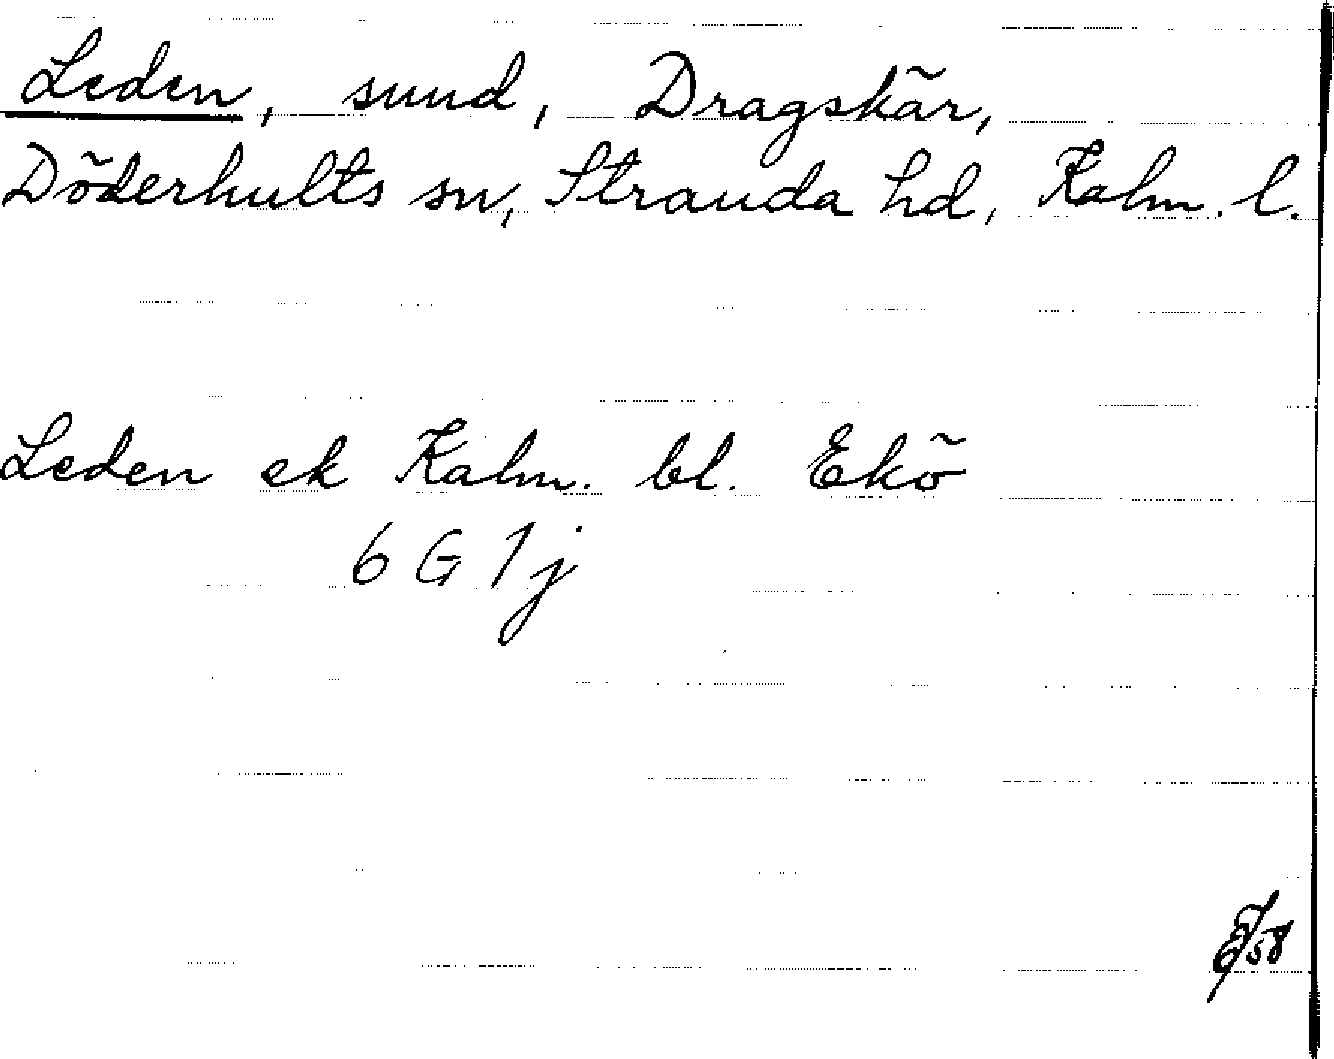 Leden, sund, Dragskär,
Döderhults sn, Stranda hd, Kalm. l.
Leden ek Kalm. bl. Ekö
6 G 1 j
58